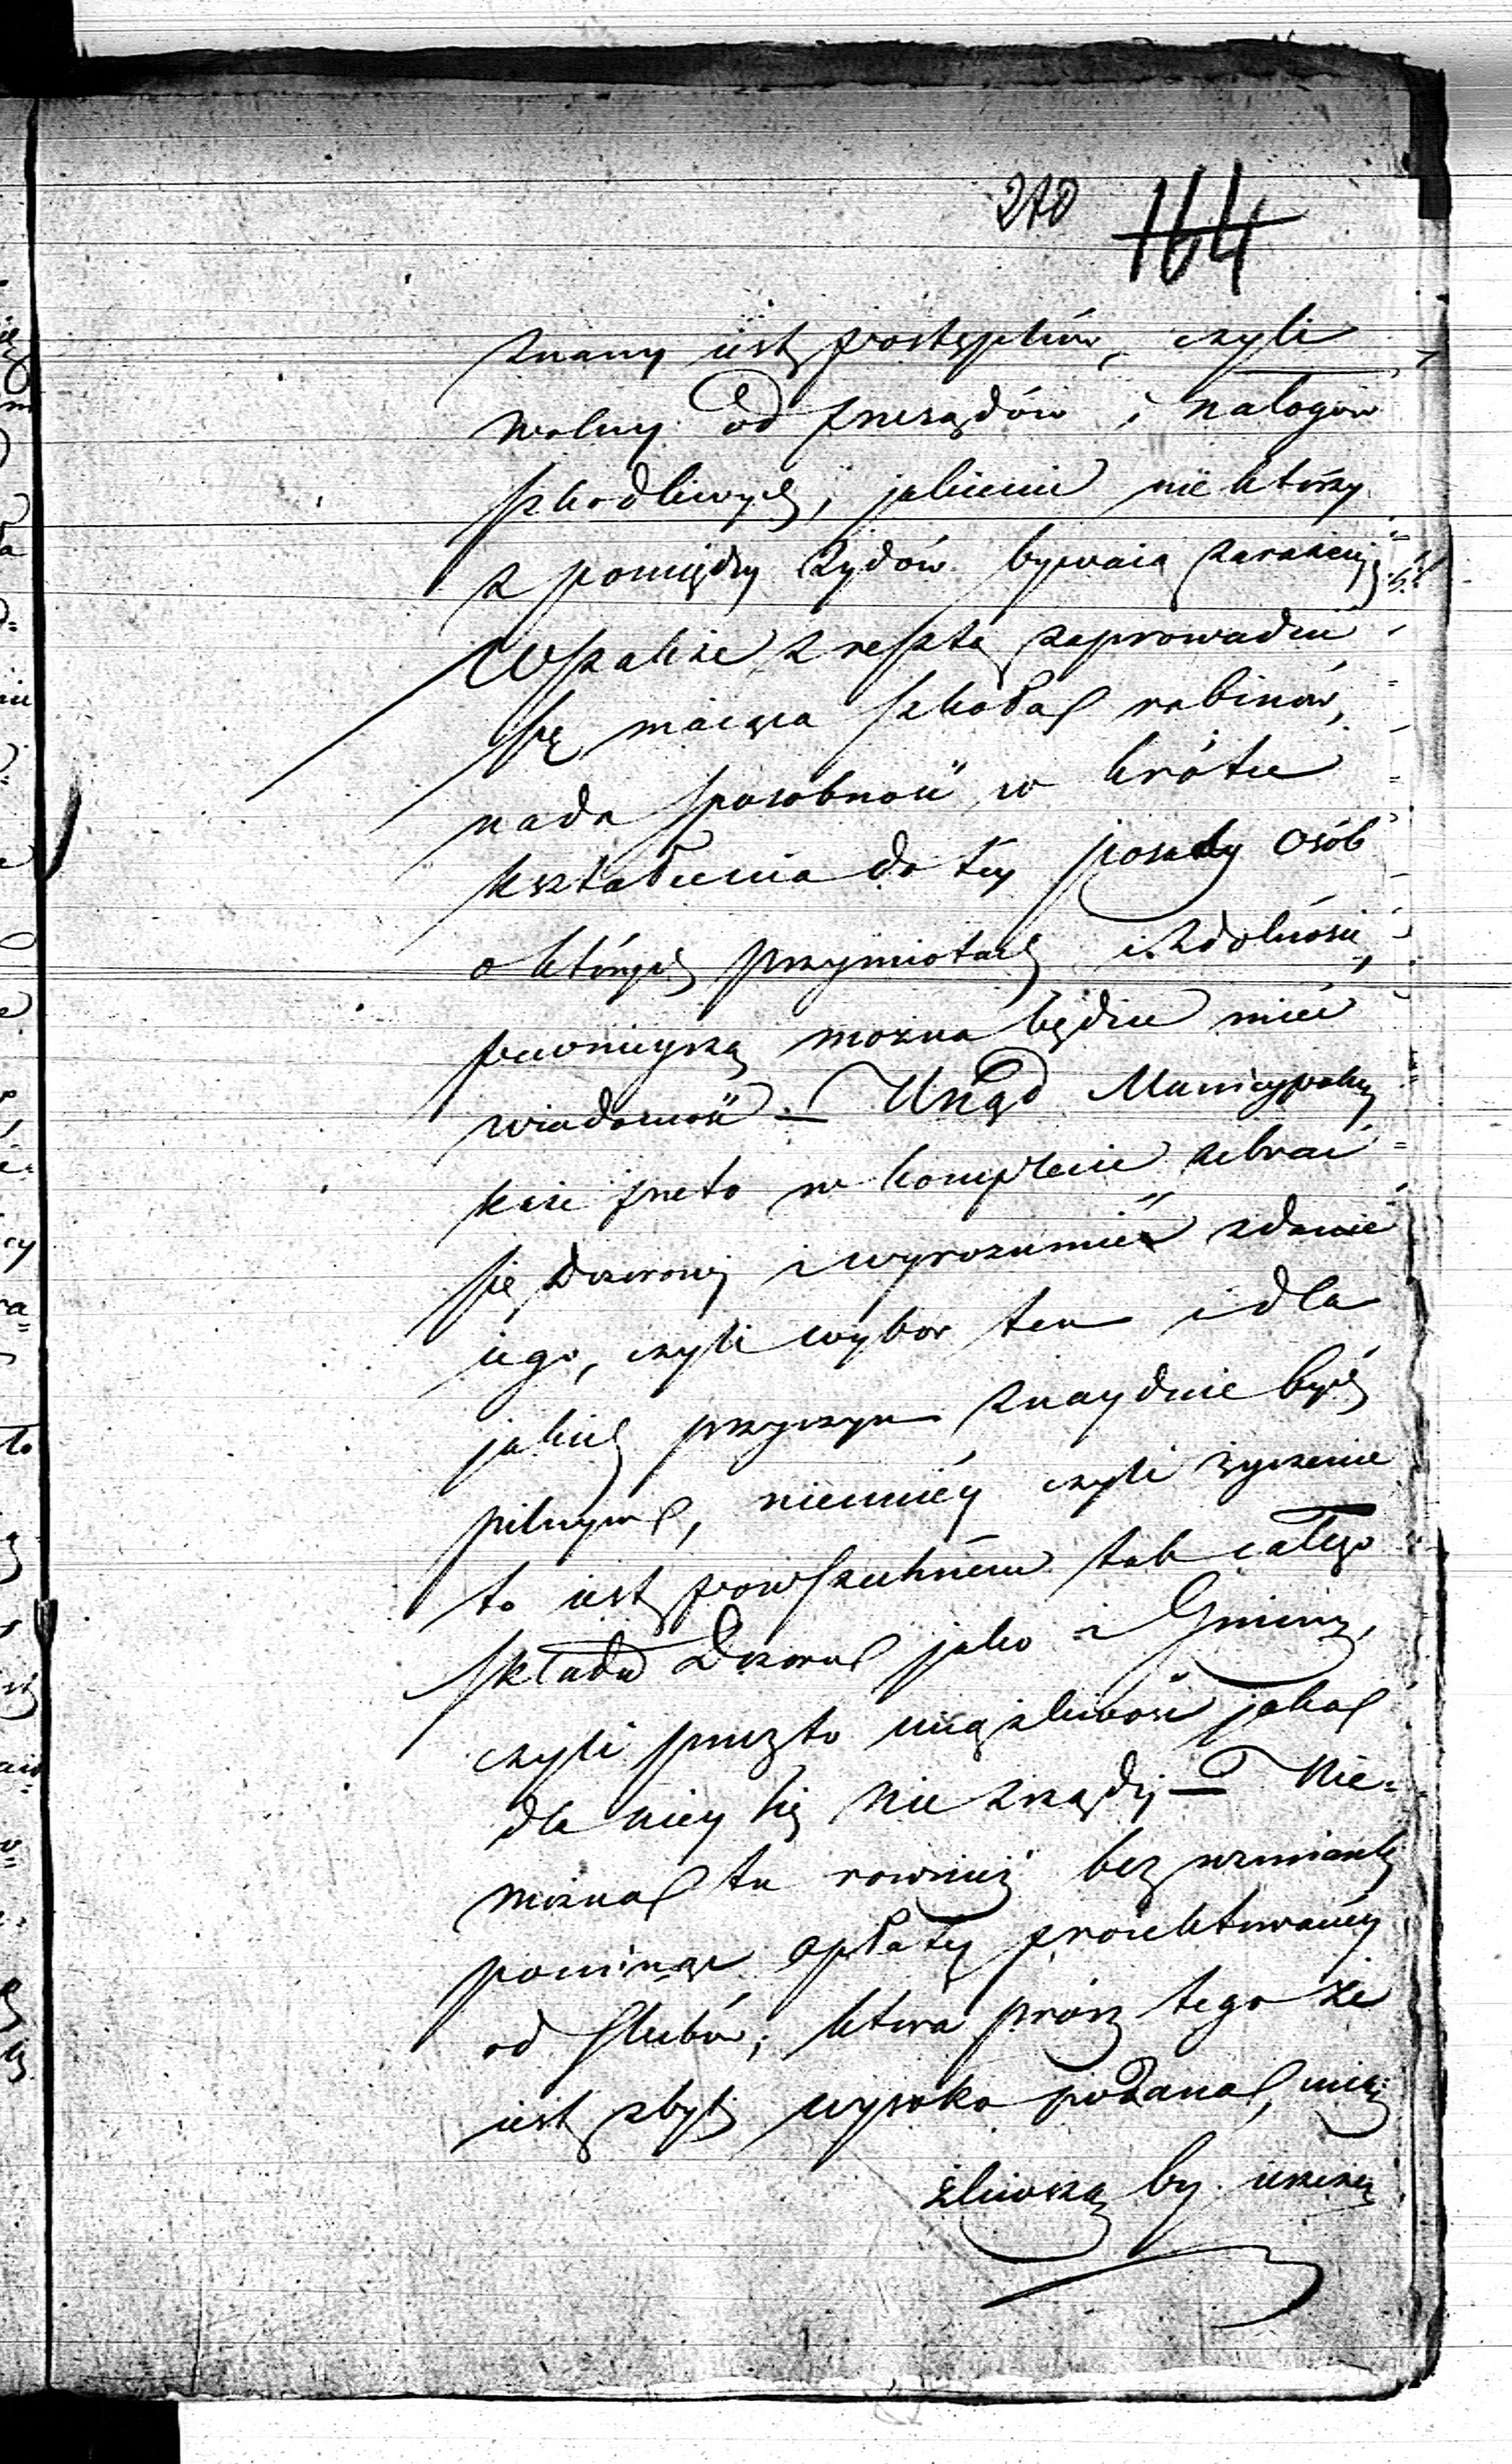 210 164
znany iest postępków, czyli
wolny od przesądów i nałogów
szkodliwych, jakiemi niektórzy
z pomiędzy Żydów bywaią zarażeni;
Wszakże zresztą zaprowadzić
się maiąca szkoła rabinów,
nada sposobność w krótce
kształcenia do tey posady osób
o których przymiotach i zdolności,
pewnieyszą można będzie mieć
wiadomość. — Urząd Municypalny
każe przeto w komplecie zebrać
się Dozorowi i wyrozumieć zdanie
iego, czyli wybor ten i dla
jakich przyczyn znayduie bydź
pilnym, niemniéy czyli życzenie
to iest powszechném tak całego
składu Dozoru jako i Gminy,
czyli przez to uciążliwość jaka
dla niey się nie zrządzi — Nie-
można tu rownież bez wzmianki
pominąć opłaty proiektowanéy
od slubów, ktora prócz tego że
iest zbyt wysoko podana, ucią
żliwszą by ieszcze